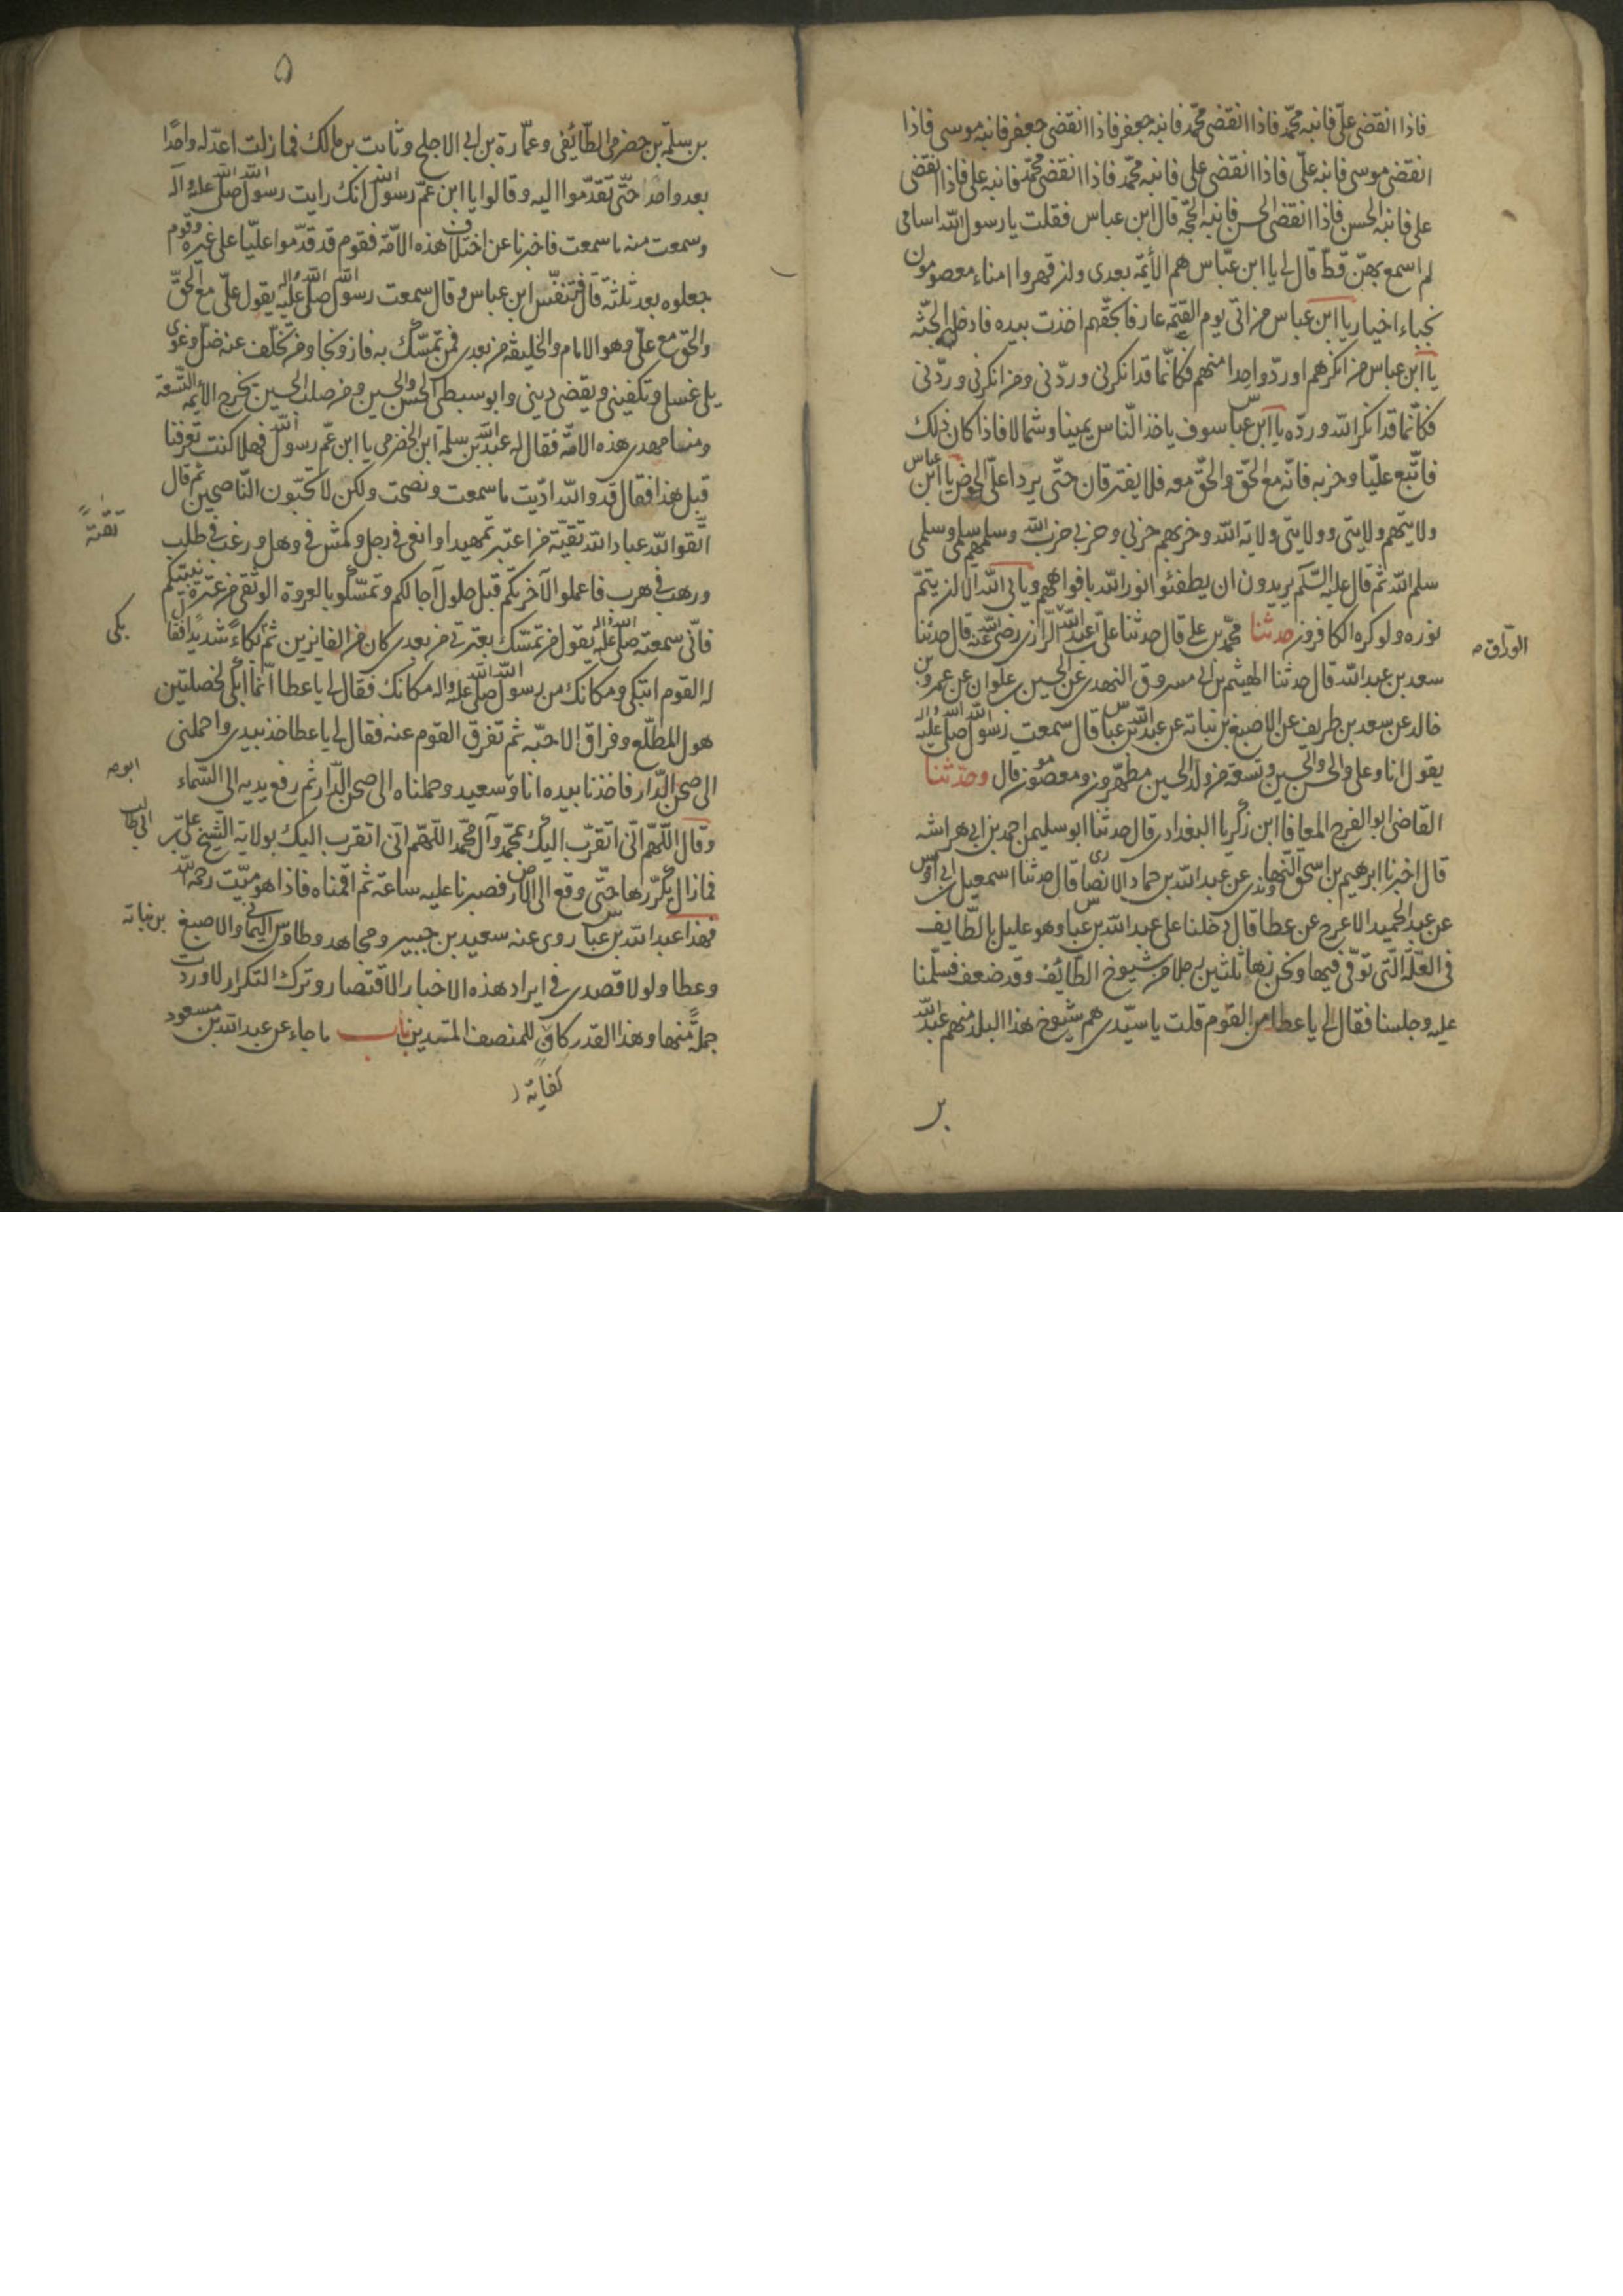 فاذا انقضى علىّ فابنه محمّد فاذا انقضى محمّد فابنه جعفر فاذا انقضى جعفر فابنه موسى فاذا
انقضى موسى فابنه علىّ فاذا انقضى على فابنه محمّد فاذا انقضى محمّد فابنه على فاذا انقضى
على فابنه الحسن فاذا انقضى الحسن فابنه الحجّة قال ابن عباس فقلت يا رسول الله اسامى
لم اسمع بهنّ قطّ قال لى يا ابن عبّاس هم الأئمّة بعدى وان قهروا امناء معصومون
نجباء اخيار يا ابن عباس من اتى يوم القيمة عارفا بحقّهم اخذت بيده فادخله الجنّة
يا ابن عباس من انكرهم او ردّ واحدا منهم فكانّما قد انكرنى وردّنى ومن انكرنى وردّنى
فكانّما قد انكر الله وردّه يا ابن عباس سوف ياخذ النّاس يمينا وشمالا فاذا كان ذلك
فاتّبع عليّا وحزبه فانّه مع الحقّ والحقّ معه فلا يفترقان حتّى يردا علىّ الحوض يا ابن عباس
ولايتهم ولايتى وولايتى ولاية الله وحربهم حربى وحربى حرب الله وسلمهم سلمى وسلمى
سلم الله ثم قال عليه السّلم يريدون ان يطفئوا نور الله بافواههم ويابى الله الا ان يتمّ
نوره ولو كره الكافرون حدثنا محمّد بن على قال حدثنا علىّ بن عبد الله الرّازى رضى الله عنه قال حدثنا
الورّاق
سعد بن عبد الله قال حدثنا الهيثم بن ابى مسروق النهدى عن الحسين بن علوان عن عمرو بن
خالد عن سعد بن طريف عن الاصبغ بن نباتة عن عبد الله بن عباس قال سمعت رسول الله صلى الله عليه واله
يقول انا وعلى والحسن والحسين وتسعة من ولد الحسين مطهّرون ومعصومون قال وحدّثنا
القاضى ابو الفرج المعافا ابن زكريا البغدادى قال حدثنا ابو سليمن احمد بن ابى هراشه
قال اخبرنا ابرهيم بن اسحق النهاوندى عن عبد الله بن حماد الانصارى قال حدثنا اسمعيل بن ابى اوس
عن عبد الحميد الاعرج عن عطا قال دخلنا على عبد الله بن عباس وهو عليل بالطّايف
فى العلّة الّتى توفّى فيها ونحن زها ثلثين رجلا من شيوخ الطّائف وقد ضعف فسلّمنا
عليه وجلسنا فقال لى يا عطا من القوم قلت يا سيّدى هم شيوخ هذا البلد منهم عبد الله
بن
۵
بن سلمة بن حضرمى الطّائفى وعمّارة بن ابى الاجلح وثابت بن مالك فما زلت اعدّ له واحدًا
بعد واحد حتّى تقدّموا اليه وقالوا يا ابن عمّ رسول الله انك رايت رسول الله صلى الله عليه وآله
وسمعت منه ما سمعت فاخبرنا عن اختلاف هذه الامّة فقوم قد قدّموا عليّا على غيره وقوم
جعلوه بعد ثلثة قال فتنفّس ابن عباس وقال سمعت رسول الله صلى الله عليه واله يقول علىّ مع الحقّ
والحقّ مع علىّ وهو الامام والخليفة من بعدى فمن تمسّك به فاز ونجا ومن تخلّف عنه ضلّ وغوى
يلى غسلى وتكفينى ويقضى دينى وابو سبطى الحسن والحسين ومن صلب الحسين يخرج الائمّة التّسعة
ومنا مهدى هذه الامّة فقال له عبد الله بن سلمة ابن الحضرمى يا ابن عمّ رسول الله فهلا كنت تعرفنا
قبل هذا فقال قد والله ادّيت ما سمعت ونصحت ولكن لا تحبّون النّاصحين ثم قال
اتّقوا الله عباد الله تقيّة من اعتبر تمهيدا وانغى فى وجل وكمش فى وهل ورغب فى طلب
تقيّةً
ورهب فى هرب فاعملوا لآخرتكم قبل حلول آجالكم وتمسّكوا بالعروة الوثقى من عترة نبيّكم
فانّى سمعته صلى الله عليه واله يقول من تمسّك بعترتى من بعدى كان من الفايزين ثم بكاءً شديدًا فقا
بكى
له القوم اتبكى ومكانك من رسول الله صلى الله عليه واله مكانك فقال لى يا عطا انّما ابكى لخصلتين
هول المطّلع وفراق الاحبّه ثم تفرق القوم عنه فقال لى يا عطا خذ بيدى واحملنى
الى صحن الدّار فاخذنا بيده انا وسعيد وحملناه الى صحن الدّار ثم رفع يديه الى السّماء
وقال اللّهمّ انّى اتقرّب اليك بمحمّد وآل محمّد اللّهمّ انّى اتقرب اليك بولاية الشّيخ علىّ بن
ابى طالب
فما زال يكرّرها حتّى وقع الى الارض فصبرنا عليه ساعة ثم اقمناه فاذا هو ميّت رحمه الله
فهذا عبد الله بن عباس روى عنه سعيد بن جبير ومجاهد وطاوس اليمانى والاصبغ
بن نباتة
وعطا ولولا قصدى فى ايراد هذه الاخبار الاقتصار وترك التكرار لاوردت
جملةً منها وهذا القدر كاف للمنصف المتدين باب ما جاء عن عبد الله بن مسعود
كفاية